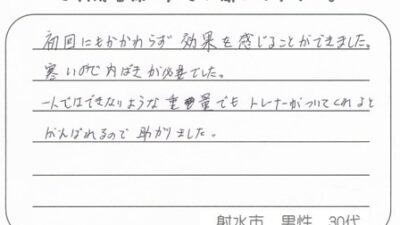 初回にもかかわらず効果を感じることができました。
寒いので内ばきが必要でした。
一人ではできないような重量でもトレーナーがついてくれると
がんばれるので助かりました。
射水市 男性 30代